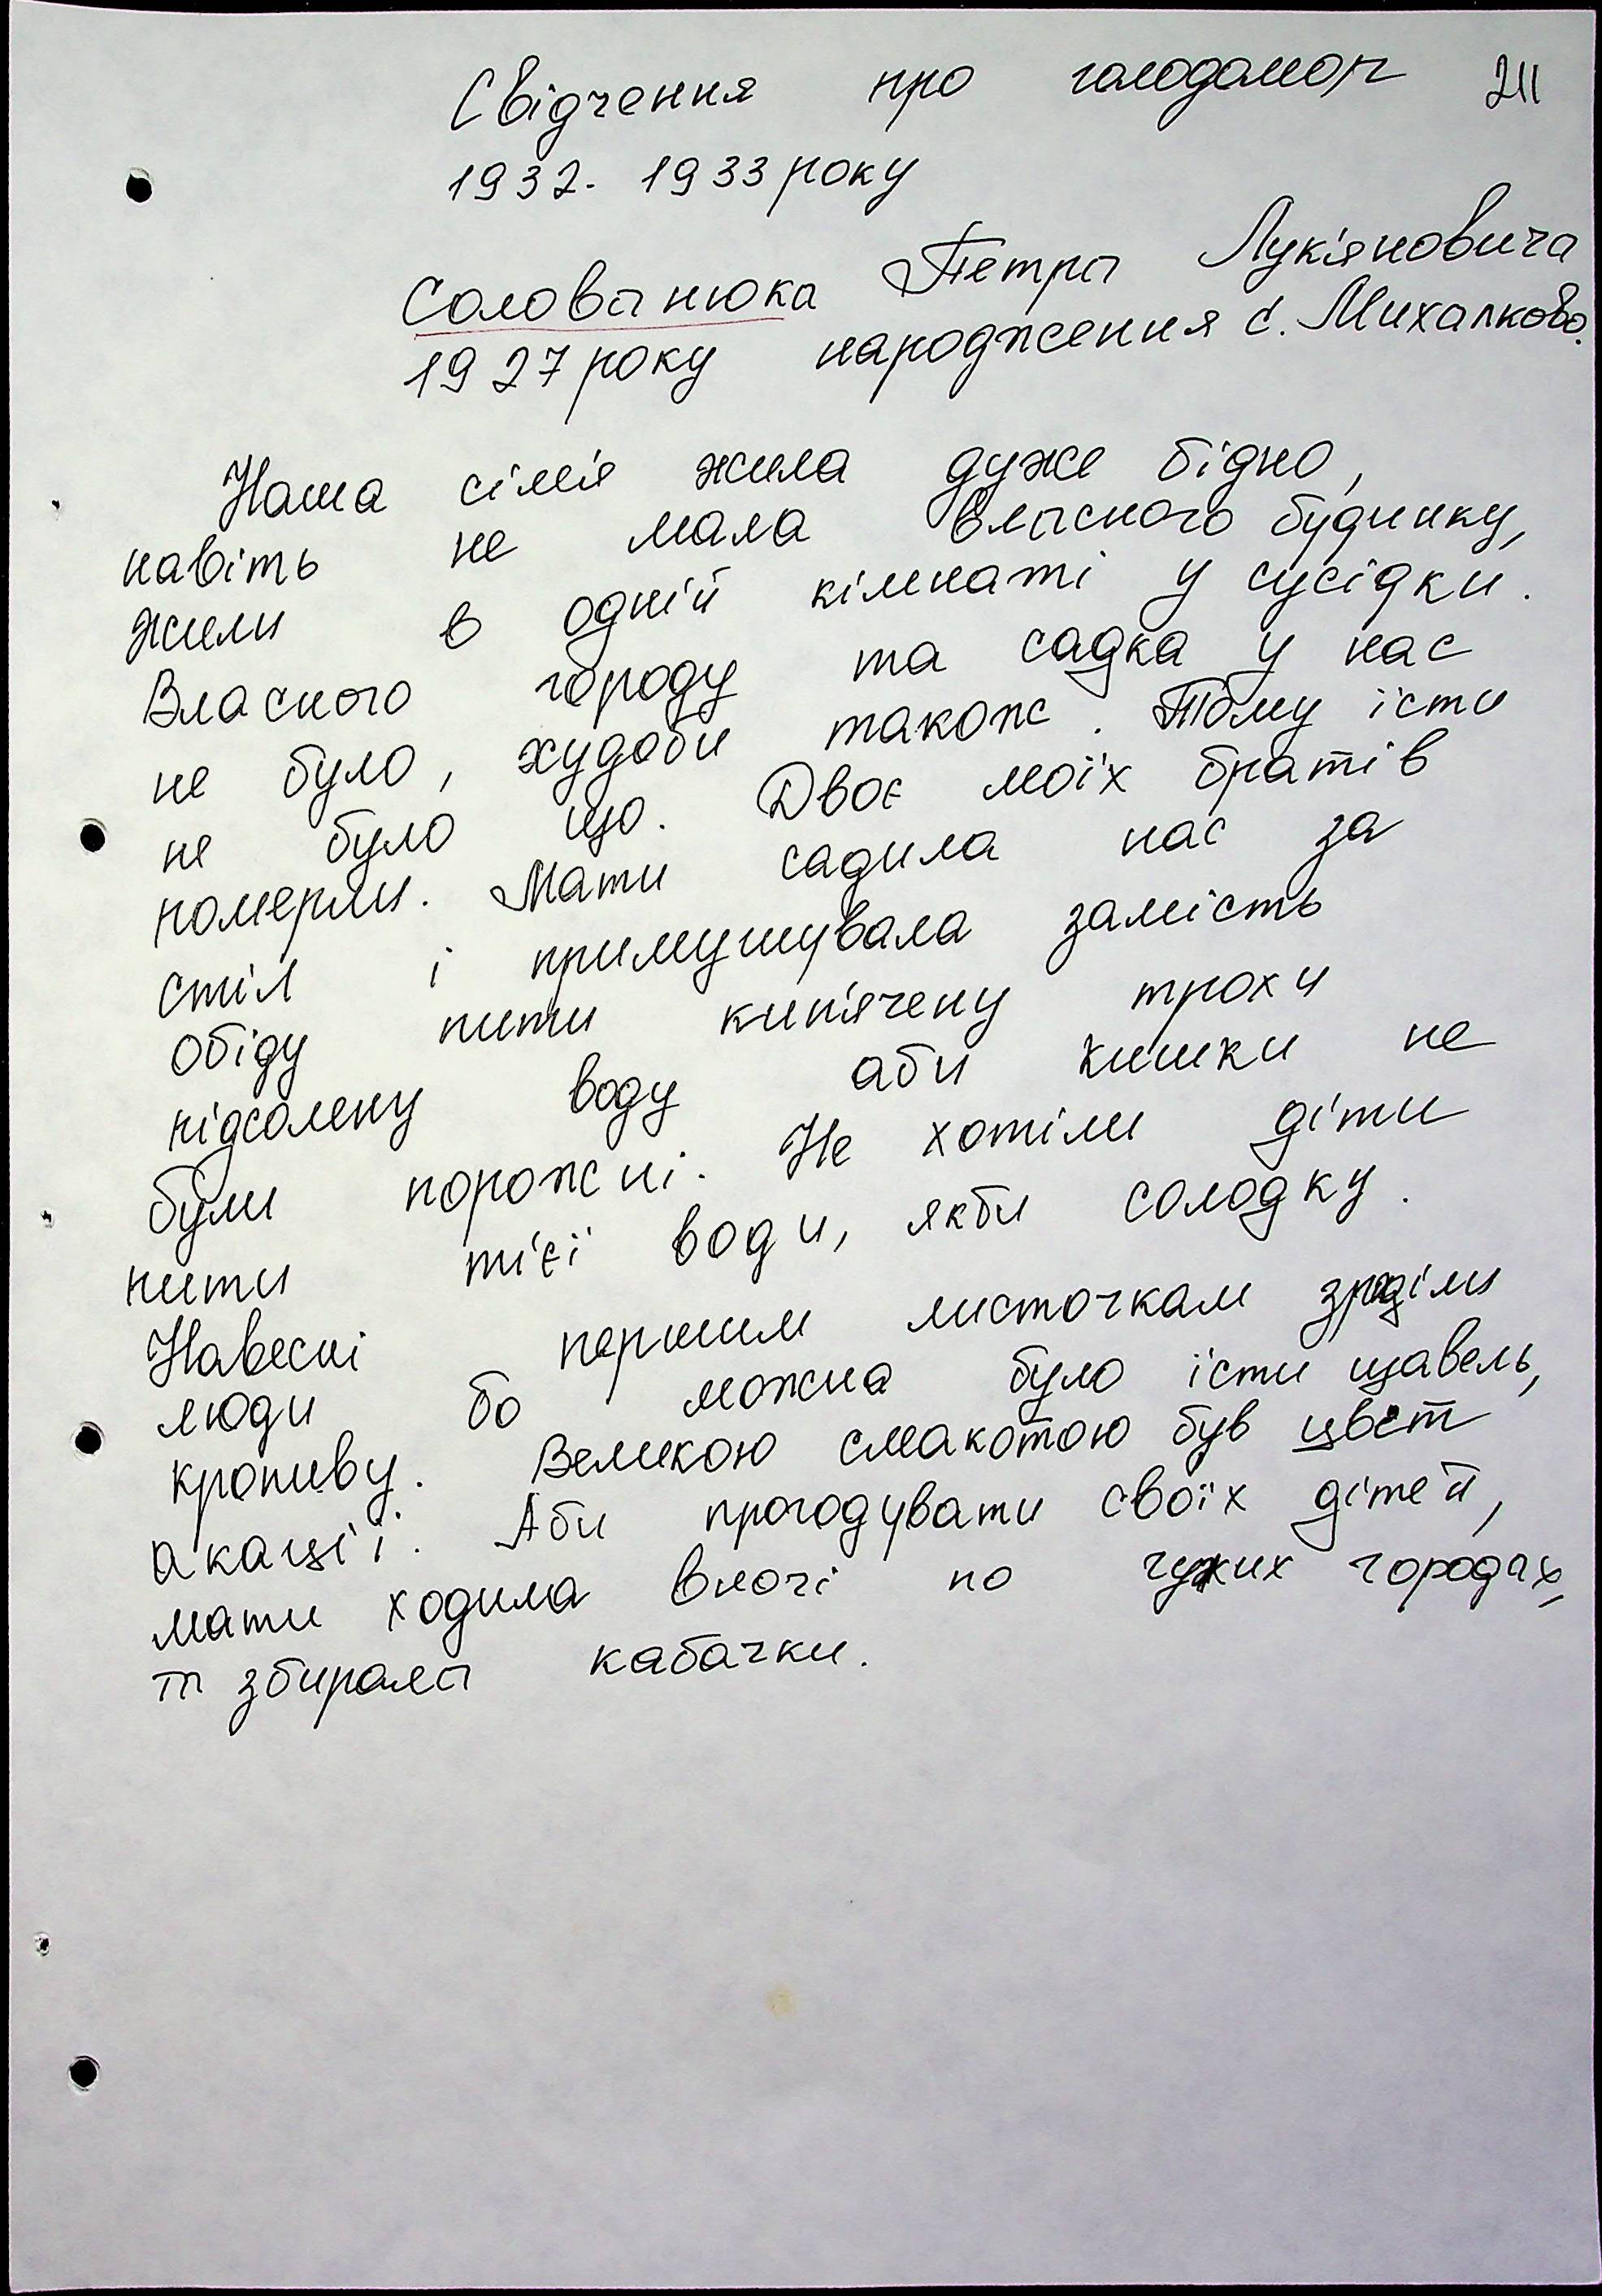 Свідчення про голодомор 211
1932-1933 року
Солованюка Петра Лук'яновича
1927 року народження с. Михалково.
Наша сім'я жила дуже бідно,
навіть не мала власного будинку,
жили в одній кімнаті у сусідки.
Власного городу та садка у нас
не було, худоби також. Тому їсти
не було що. Двоє моїх братів
померли. Мати садила нас за
стіл і примушувала замість
обіду пити кип'ячену трохи
підсолену воду аби кишки не
були порожні. Не хотіли діти
пити тієї води, якби солодку.
Навесні першим листочкам зраділи
люди бо можна було їсти щавель,
кропиву. Великою смакотою був цвєт
акації. Аби прогодувати своїх дітей,
мати ходила вночі по чужих городах,
та збирала кабачки.